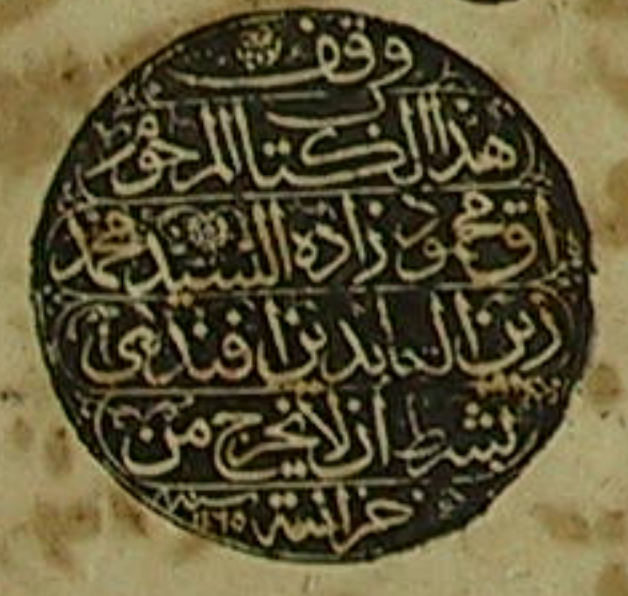 وقف
هذا الكتاب المرحوم
اق محمود زاده السيد محمد
زين العابدين افندى
بشرط ان لا يخرج من
خزانته سنة ١١٦٥